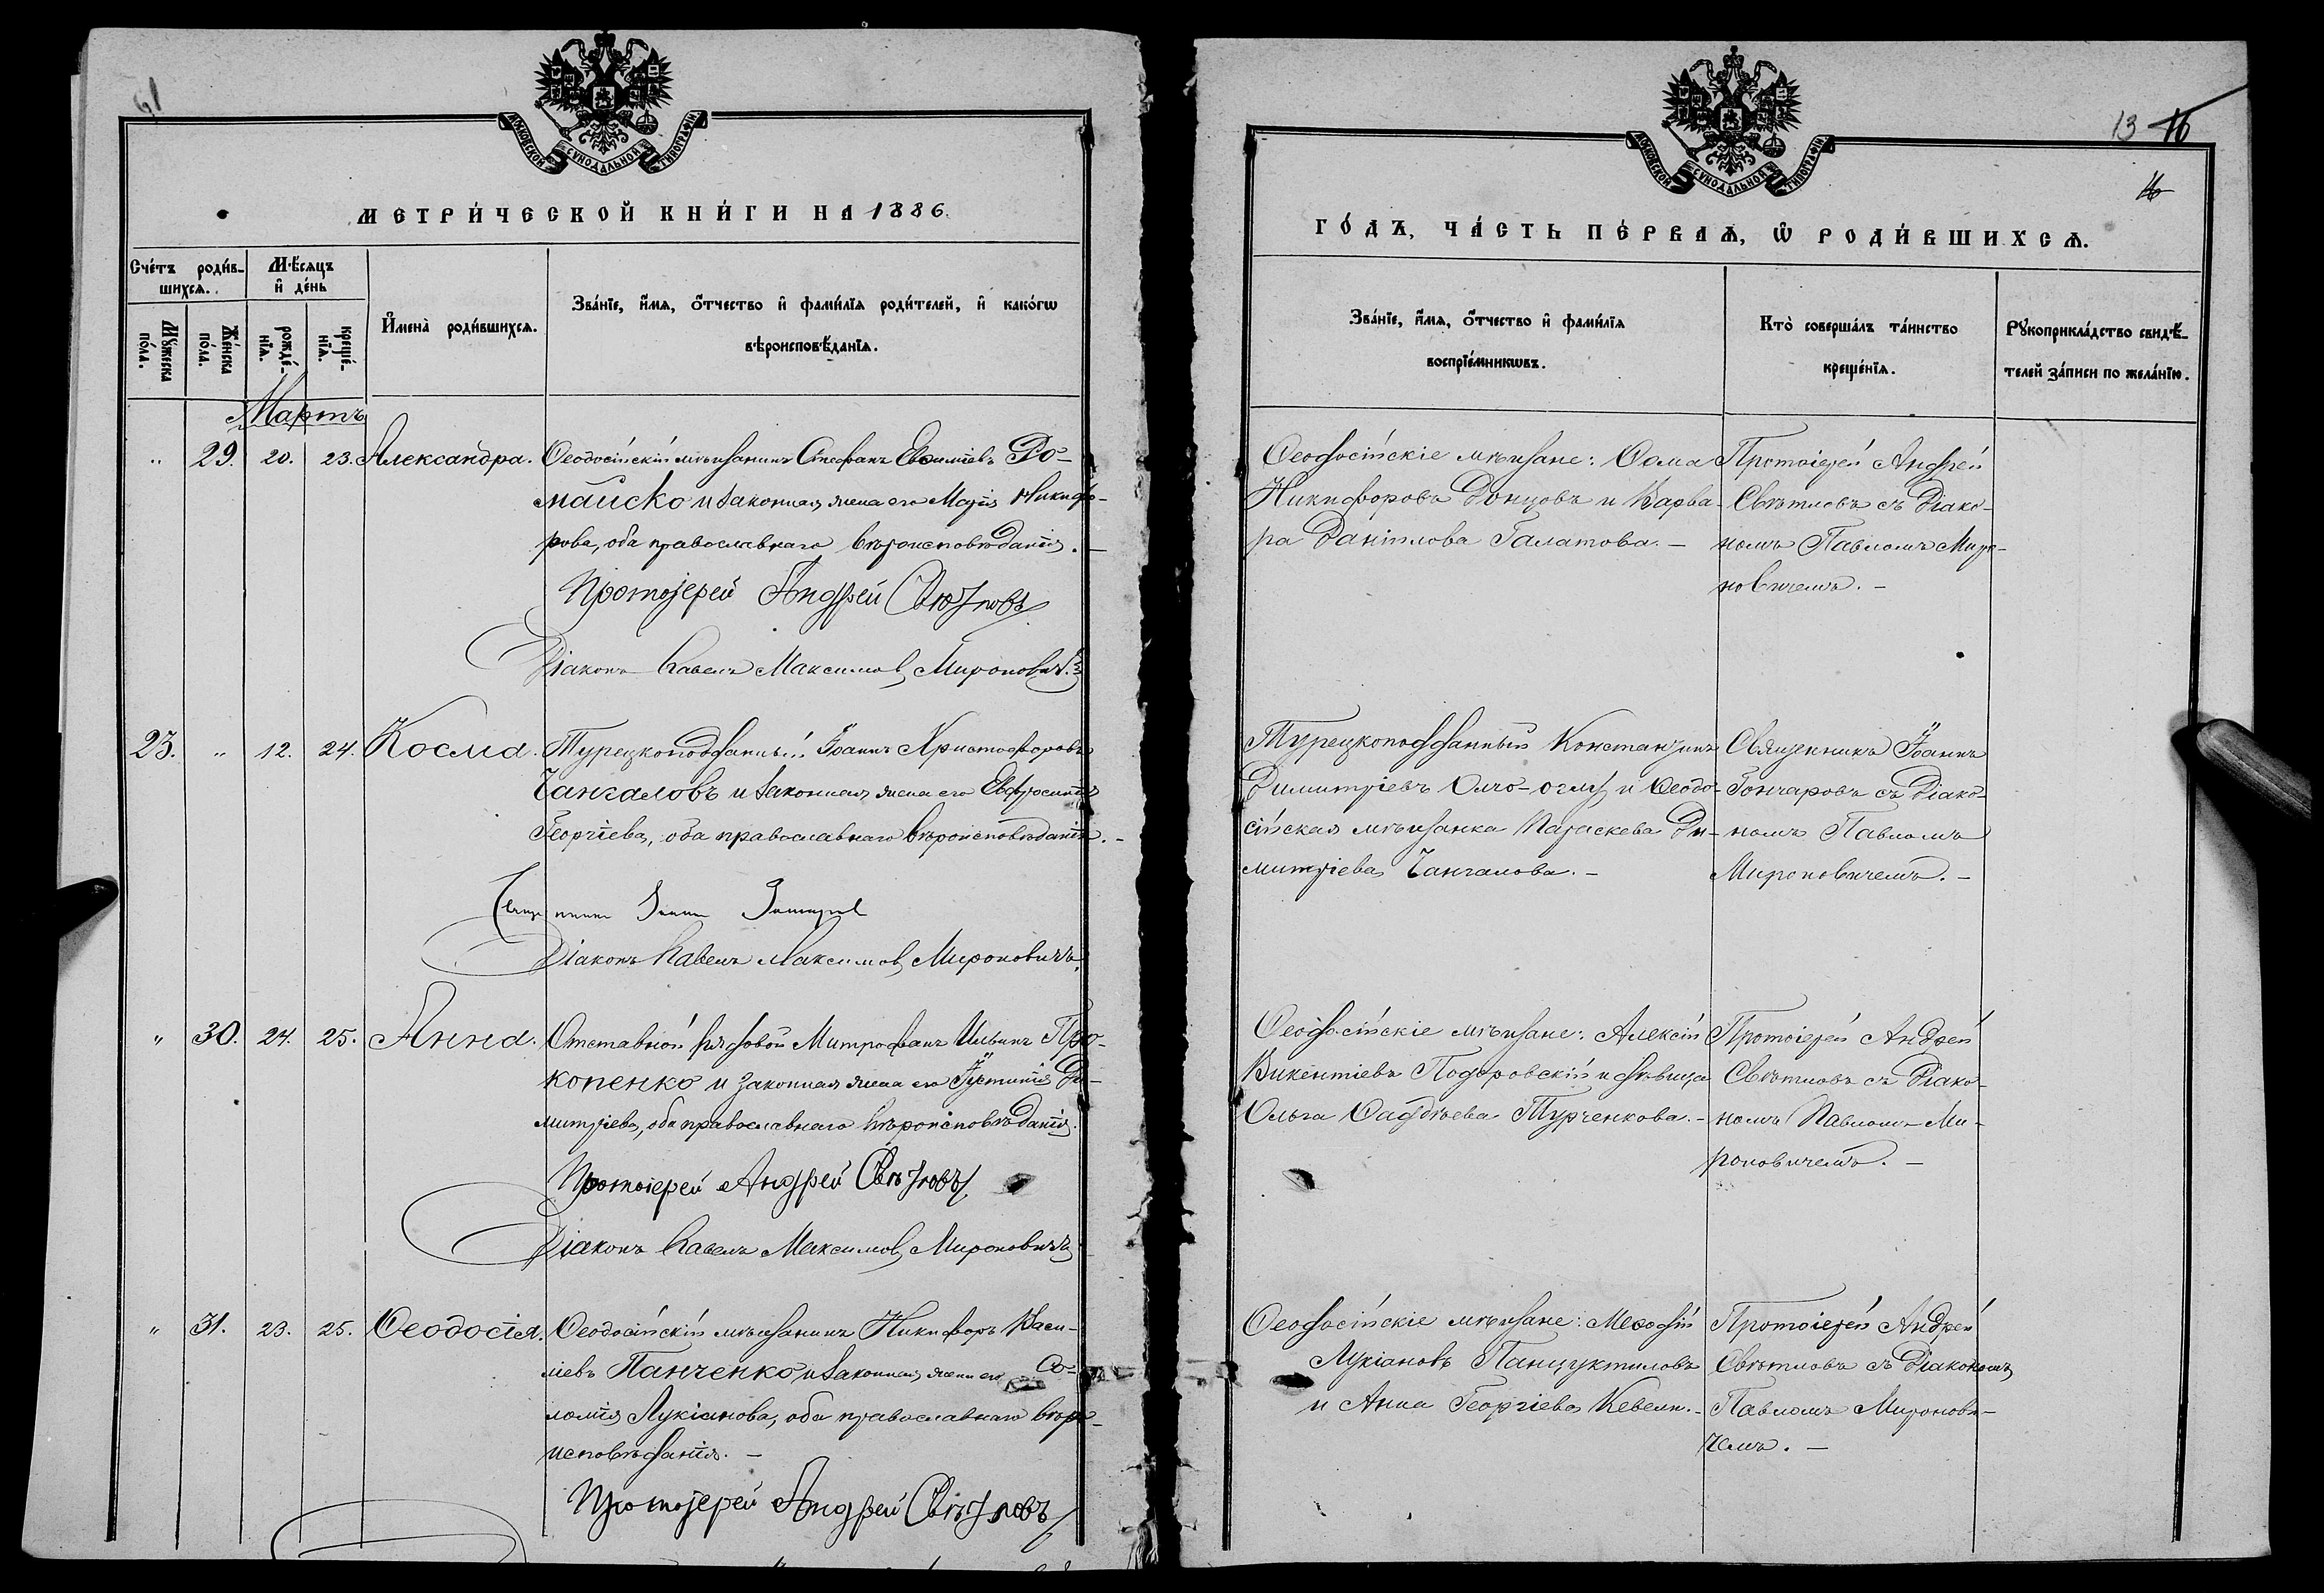 61
МОСКОВСКОЙ СѴНОДАЛЬНОЙ ТИПОГРАФІИ
МЕТРИ́ЧЕСКОЙ КНИ́ГИ НА 1886.
Сче́тъ роди́вшихсѧ.
Мѣ́сѧцъ и҆ де́нь
И҆мена̀ роди́вшихсѧ.
Зва́нїе, и҆́мѧ, ѻ҆́тчество и҆ фами́лїѧ роди́телей, и҆ како́гѡ
вѣроисповѣ́данїѧ.
Мꙋ́жеска по́ла.
Же́нска по́ла.
рожде́нїѧ.
креще́нїѧ.
Мартъ
" 29. 20. 23. Александра. Ѳеодосійскій мѣщанинъ Стефанъ Евѳиміевъ Ро-
майско и законная жена его Марія Никифо-
рова, оба православнаго вѣроисповѣданія. —
Протоіерей Андрей Свѣтловъ
Діаконъ Павелъ Максимов Мироновичъ
23. " 12. 24. Косма. Турецкоподданный Іоаннъ Христофоровъ
Чангаловъ и законная жена его Евфросинія
Георгіева, оба православнаго вѣроисповѣданія. —
Діаконъ Павелъ Максимов Мироновичъ
" 30. 24. 25. Анна. Отставной рядовой Митрофанъ Ильинъ Про-
копенко и законная жена его Іустинія Ди-
митріева, оба православнаго вѣроисповѣданія.
Протоіерей Андрей Свѣтловъ
Діаконъ Павелъ Максимов Мироновичъ
" 31. 23. 25. Ѳеодосія. Ѳеодосійскій мѣщанинъ Никифоръ Васи-
ліевъ Панченко и законная жена его Со-
ломія Лукіанова, оба православнаго вѣро-
исповѣданія. —
Протоіерей Андрей Свѣтловъ
13 16
16
МОСКОВСКОЙ СѴНОДАЛЬНОЙ ТИПОГРАФІИ
ГО́ДЪ, ЧА́СТЬ ПЕ́РВАѦ, Ѡ҆ РОДИ́ВШИХСѦ.
Зва́нїе, и҆́мѧ, ѻ҆́тчество и҆ фами́лїѧ
воспрїе́мникѡвъ.
Кто̀ соверша́лъ та́инство
креще́нїѧ.
Рꙋкоприкла́дство свидѣ́-
телей за́писи по жела́нїю.
Ѳеодосійскіе мѣщане: Ѳома
Никифоровъ Донцовъ и Варва-
ра Даніилова Галатова. —
Протоіерей Андрей
Свѣтловъ съ Діако-
номъ Павломъ Миро-
новичемъ. —
Турецкоподданный Константинъ
Димитріевъ Олчо-оглу и Ѳеодо-
сійская мѣщанка Параскева Ди-
митріева Чангалова. —
Священникъ Іоаннъ
Гончаровъ съ Діако-
номъ Павломъ
Мироновичемъ. —
Ѳеодосійскіе мѣщане: Алексій
Викентіевъ Подоровскій и дѣвица
Ольга Ѳаддѣева Турченкова. —
Протоіерей Андрей
Свѣтловъ съ Діако-
номъ Павломъ Ми-
роновичемъ. —
Ѳеодосійскіе мѣщане: Меѳодій
Лукіановъ Панцуктиловъ
и Анна Георгіева Кевели. —
Протоіерей Андрей
Свѣтловъ съ Діакономъ
Павломъ Миронови-
чемъ. —